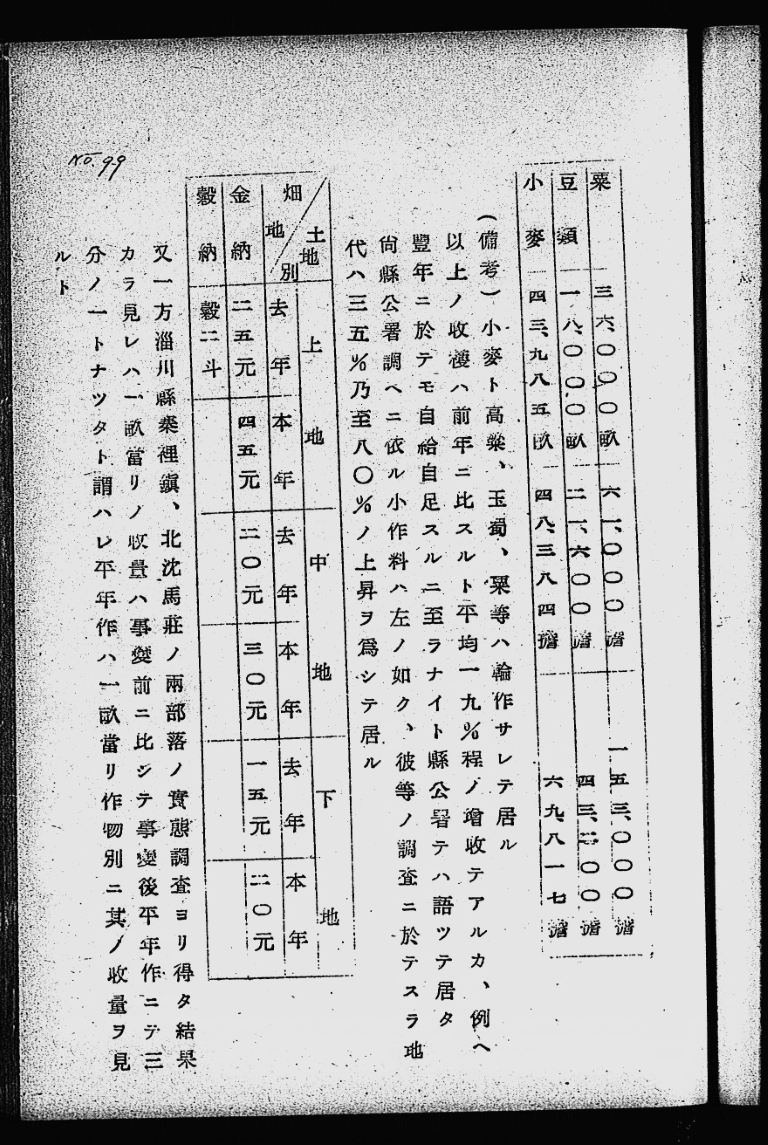 No. 99
粟 三六、〇〇〇畝 六一、〇〇〇擔 一五三、〇〇〇擔
豆類 一八、〇〇〇畝 二一、六〇〇擔 四三、二〇〇擔
小麥 四三、九八五畝 四八、三八四擔 六九、八一七擔
(備考)小麥ト高粱、玉蜀、粟等ハ輪作サレテ居ル
以上ノ收穫ハ前年ニ比スルト平均一九%程ノ增收テアルカ、例ヘ
豐年ニ於テモ自給自足スルニ至ラナイト縣公署テハ語ツテ居タ
尙縣公署調ヘニ依ル小作料ハ左ノ如ク、彼等ノ調査ニ於テスラ地
代ハ三五%乃至八〇%ノ上昇ヲ爲シテ居ル
土地別 上地 中地 下地
畑地 去年 本年 去年 本年 去年 本年
金納 二五元 四五元 二〇元 三〇元 一五元 二〇元
穀納 穀二斗
又一方淄川縣 裡鎭、北沈馬莊ノ兩部落ノ實態調査ヨリ得タ結果
カラ見レハ一畝當リノ收量ハ事變前ニ比シテ事變後平年作ニテ三
分ノ一トナツタト謂ハレ平年作ハ一畝當リ作物別ニ其ノ收量ヲ見
ルト